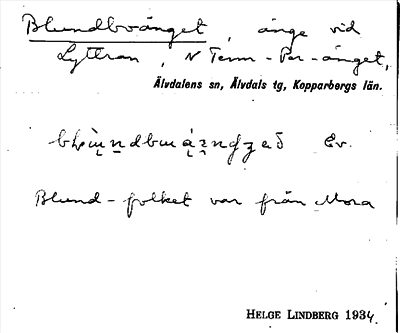 Blundbwånget, änge vid
Lyttran, N Tenn-Per-ånget,
Älvdalens sn, Älvdals tg, Kopparbergs län.
Ev.
Blund-folket var från Mora
HELGE LINDBERG 1934.